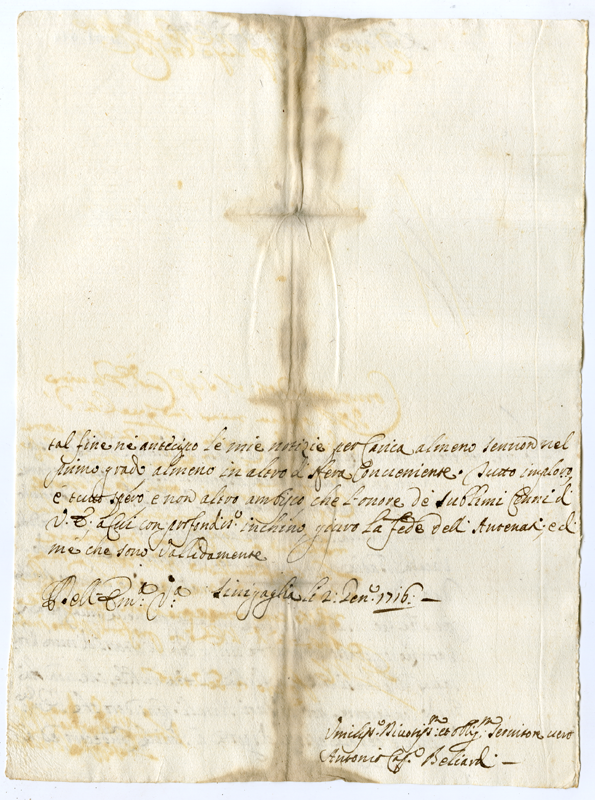 tal fine ne antecipo le mie notizie per carica almeno se non nel
primo grado almeno in altro d sfera conueniente. Tutto imploro,
e tutto spero e non altro ambisco che l'onore de sublimi Cenni di
V. E., a cui con profondis.º inchino, giuro la fede dell' Antenati, e di
me che sono Vallidamente
Dell' Em.ª V.ª Sinigaglia le 2: Gen.º 1716: —
Vmiliss.º Diuotiss.mo et obblig.mo Seruitore uero
Antonio Beliardi —